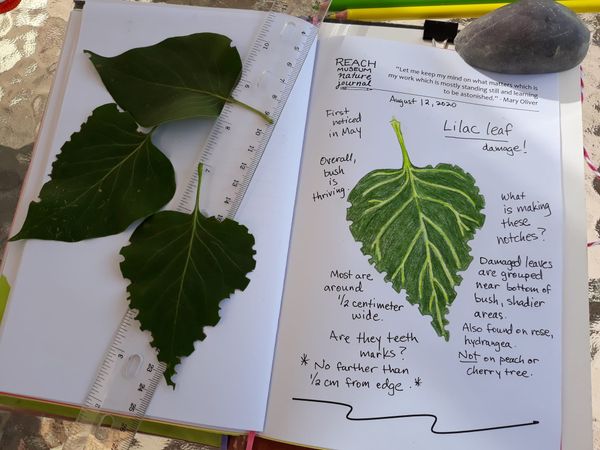 REACH
MUSEUM
nature
journal
"Let me keep my mind on what matters which is
my work which is mostly standing still and learning
to be astonished." - Mary Oliver
August 12, 2020
Lilac leaf
damage!
First
noticed
in May
Overall,
bush
is
thriving.
What
is making
these
notches?
Most are
around
1/2 centimeter
wide.
Damaged leaves
are grouped
near bottom of
bush, shadier
areas.
Also found on rose,
hydrangea.
Not on peach or
cherry tree.
Are they teeth
marks?
* No farther than
1/2 cm from edge. *